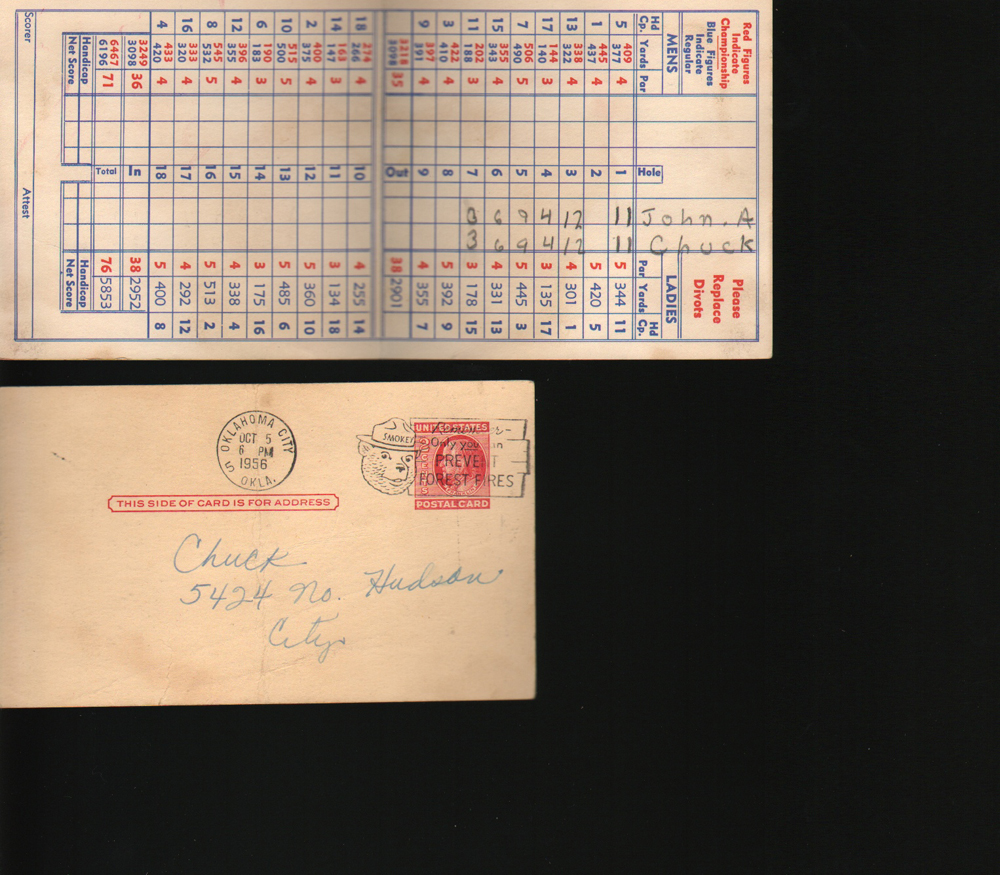 Red Figures
Indicate
Championship
Blue Figures
Indicate
Regular
Please
Replace
Divots
MENS John.A Chuck LADIES
Hd Cp. Yards Par Hole Par Yards Hd Cp.
5 409 377 4 1 11 11 5 344 11
1 445 437 4 2 5 420 5
13 338 322 4 3 12 12 4 301 1
17 144 140 3 4 4 4 3 135 17
7 506 490 5 5 9 9 5 445 3
15 355 343 4 6 6 6 4 331 13
11 202 188 3 7 3 3 3 178 15
3 422 410 4 8 5 392 9
9 397 391 4 9 4 355 7
3218 3098 35 Out 38 2901
18 274 266 4 10 4 255 14
14 163 147 3 11 3 134 18
2 400 375 4 12 5 360 10
10 515 500 5 13 5 485 6
6 190 183 3 14 3 175 16
12 396 355 4 15 4 338 4
8 545 532 5 16 5 513 2
16 333 320 4 17 4 292 12
4 420 4 18 5 400 8
3249 3098 36 In 38 2952
6467 6196 71 Total 76 5853
Handicap Handicap
Net Score Net Score
Scorer Attest
OKLAHOMA CITY
OCT 5
6 PM
1956
5 OKLA.
SMOKEY
UNITED STATES
Only you
PREVENT
FOREST FIRES
POSTAL CARD
THIS SIDE OF CARD IS FOR ADDRESS
Chuck
5424 No. Hudson
City